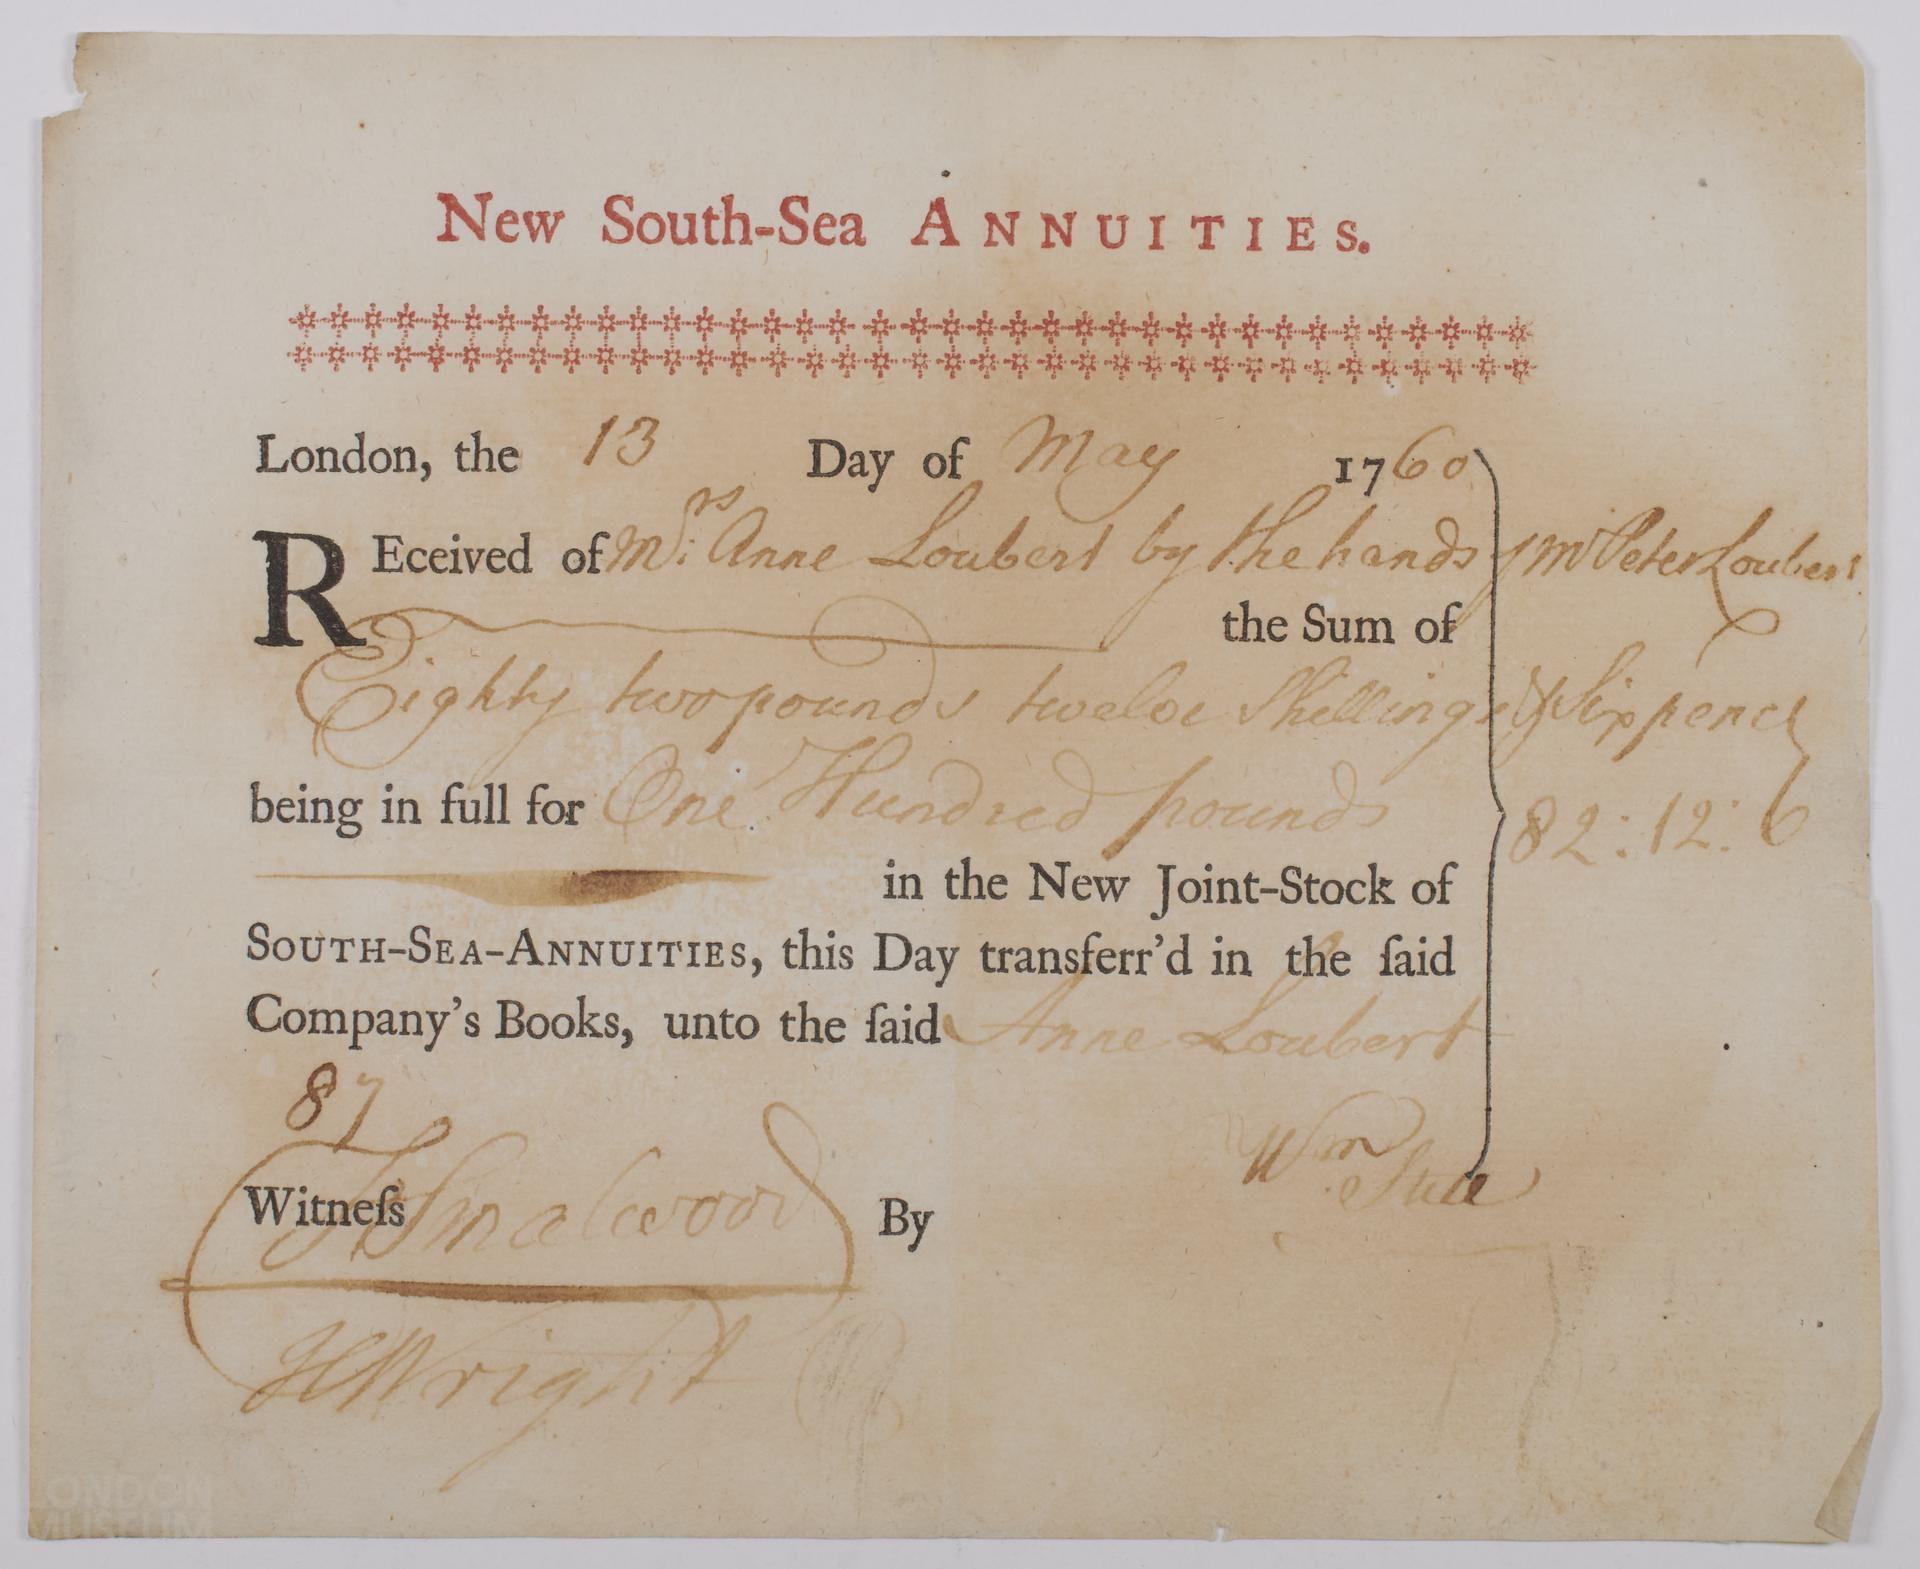 New South-Sea ANNUITIES.
London, the 13 Day of May 1760
REceived of Mrs: Anne Loubert by the hands of Mr Peter Loubert
the Sum of
Eighty two pounds twelve Shillings & Sixpence
being in full for One Hundred pounds
82:12:6
in the New Joint-Stock of
SOUTH-SEA-ANNUITIES, this Day transferr'd in the ſaid
Company's Books, unto the ſaid Anne Loubert
87
Wm
Witneſs J Smalwood By
H Wright
LONDON
MUSEUM